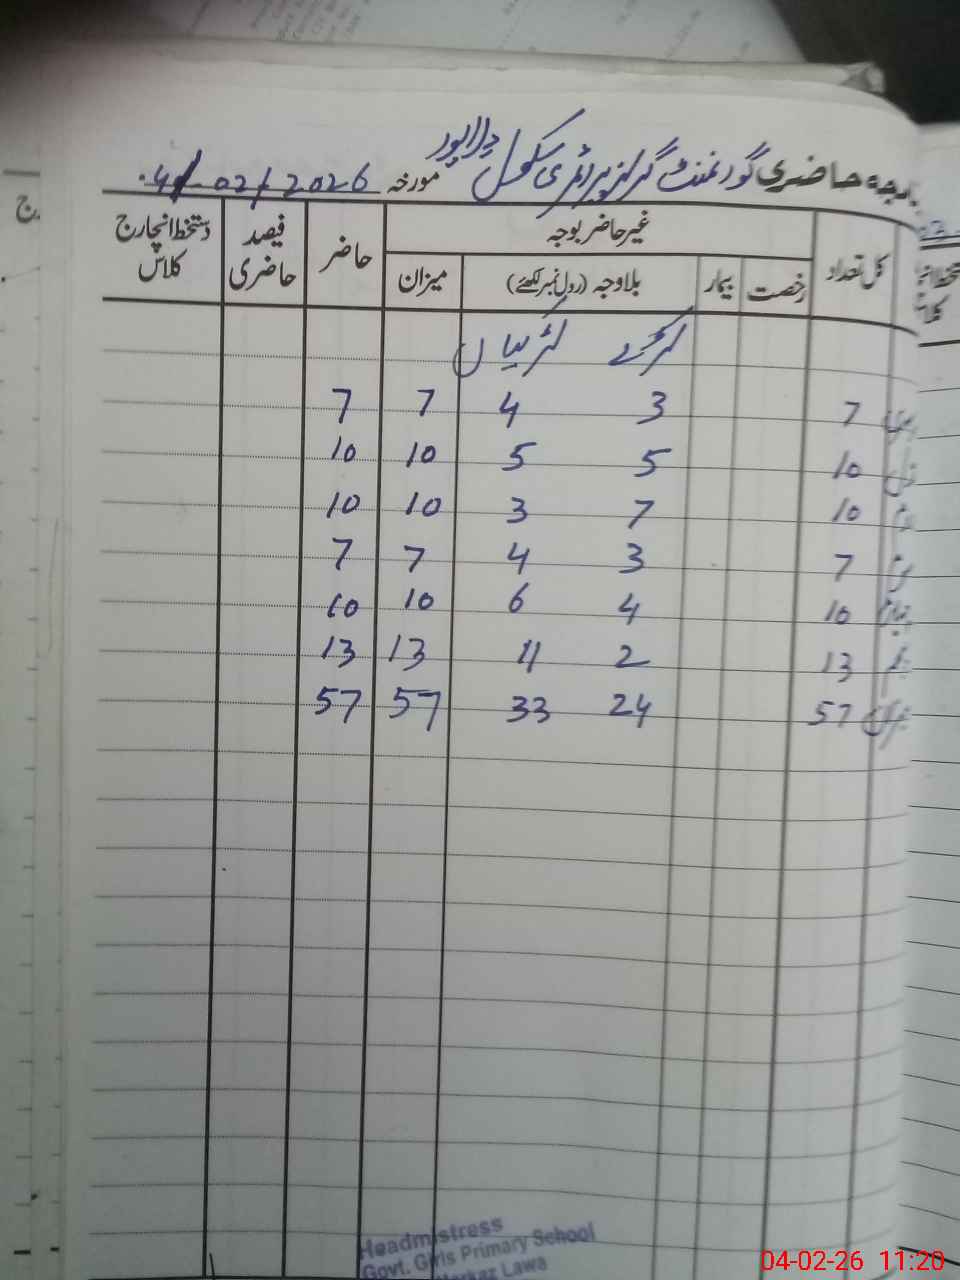 حاضری گورنمنٹ گرلز پرائمری سکول مورخہ 04-02-2026
کل تعداد غیر حاضر بوجہ حاضر فیصد حاضری دستخط انچارج کلاس
رخصت بیمار بلاوجہ (رول نمبر لکھئے) میزان
لڑکے لڑکیاں
7 3 4 7 7
10 5 5 10 10
10 7 3 10 10
7 3 4 7 7
10 4 6 10 10
13 2 11 13 13
57 24 33 57 57
Headmistress
Govt. Girls Primary School
Markaz Lawa
04-02-26 11:20